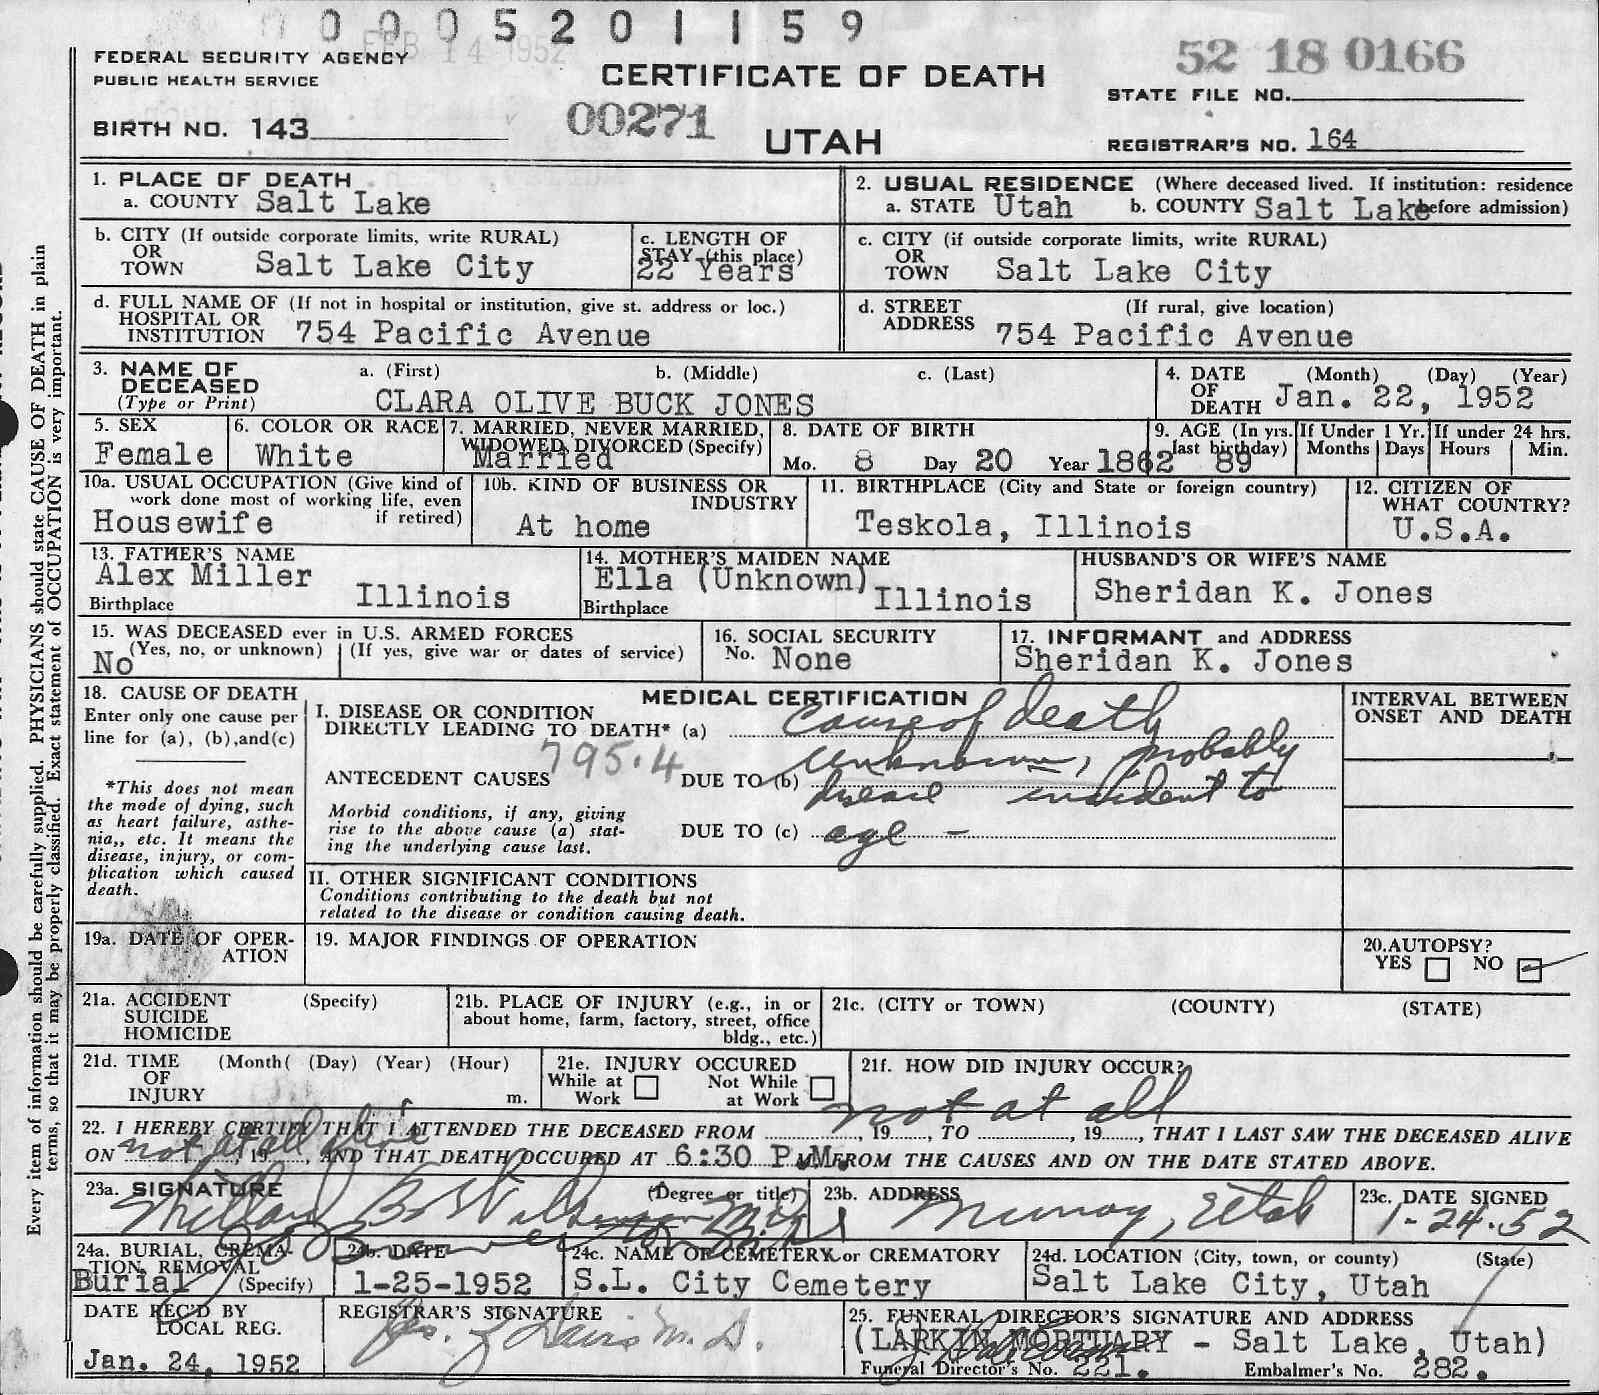 0005201159
FEB 14 1952
FEDERAL SECURITY AGENCY
PUBLIC HEALTH SERVICE
CERTIFICATE OF DEATH
52 18 0166
STATE FILE NO.
BIRTH NO. 143
00271
UTAH
REGISTRAR'S NO. 164
Every item of information should be carefully supplied. PHYSICIANS should state CAUSE OF DEATH in plain
terms, so that it may be properly classified. Exact statement of OCCUPATION is very important.
1. PLACE OF DEATH
a. COUNTY Salt Lake
2. USUAL RESIDENCE (Where deceased lived. If institution: residence
a. STATE Utah b. COUNTY Salt Lake before admission)
b. CITY (If outside corporate limits, write RURAL)
OR
TOWN Salt Lake City
c. LENGTH OF
STAY (this place)
22 Years
c. CITY (if outside corporate limits, write RURAL)
OR
TOWN Salt Lake City
d. FULL NAME OF (If not in hospital or institution, give st. address or loc.)
HOSPITAL OR
INSTITUTION 754 Pacific Avenue
d. STREET (If rural, give location)
ADDRESS 754 Pacific Avenue
3. NAME OF a. (First) b. (Middle) c. (Last)
DECEASED
(Type or Print) CLARA OLIVE BUCK JONES
4. DATE (Month) (Day) (Year)
OF
DEATH Jan. 22, 1952
5. SEX
Female
6. COLOR OR RACE
White
7. MARRIED, NEVER MARRIED,
WIDOWED, DIVORCED (Specify)
Married
8. DATE OF BIRTH
Mo. 8 Day 20 Year 1862
9. AGE (In yrs.
last birthday) 89
If Under 1 Yr.
Months Days
If under 24 hrs.
Hours Min.
10a. USUAL OCCUPATION (Give kind of
work done most of working life, even
if retired)
Housewife
10b. KIND OF BUSINESS OR
INDUSTRY
At home
11. BIRTHPLACE (City and State or foreign country)
Teskola, Illinois
12. CITIZEN OF
WHAT COUNTRY?
U.S.A.
13. FATHER'S NAME
Alex Miller
Birthplace Illinois
14. MOTHER'S MAIDEN NAME
Ella (Unknown)
Birthplace Illinois
HUSBAND'S OR WIFE'S NAME
Sheridan K. Jones
15. WAS DECEASED ever in U.S. ARMED FORCES
(Yes, no, or unknown) (If yes, give war or dates of service)
No
16. SOCIAL SECURITY
No. None
17. INFORMANT and ADDRESS
Sheridan K. Jones
18. CAUSE OF DEATH
Enter only one cause per
line for (a), (b),and(c)
*This does not mean
the mode of dying, such
as heart failure, asthe-
nia,, etc. It means the
disease, injury, or com-
plication which caused
death.
MEDICAL CERTIFICATION
I. DISEASE OR CONDITION
DIRECTLY LEADING TO DEATH* (a) Cause of death
795.4
ANTECEDENT CAUSES DUE TO (b) unknown, probably
disease incident to
Morbid conditions, if any, giving
rise to the above cause (a) stat-
ing the underlying cause last.
DUE TO (c) age -
II. OTHER SIGNIFICANT CONDITIONS
Conditions contributing to the death but not
related to the disease or condition causing death.
INTERVAL BETWEEN
ONSET AND DEATH
19a. DATE OF OPER-
ATION
19. MAJOR FINDINGS OF OPERATION
20.AUTOPSY?
YES NO
21a. ACCIDENT (Specify)
SUICIDE
HOMICIDE
21b. PLACE OF INJURY (e.g., in or
about home, farm, factory, street, office
bldg., etc.)
21c. (CITY or TOWN) (COUNTY) (STATE)
21d. TIME (Month( (Day) (Year) (Hour)
OF
INJURY m.
21e. INJURY OCCURED
While at Work Not While at Work
21f. HOW DID INJURY OCCUR?
not at all
22. I HEREBY CERTIFY THAT I ATTENDED THE DECEASED FROM , 19 , TO , 19 , THAT I LAST SAW THE DECEASED ALIVE
not at all alive
ON , 19 , AND THAT DEATH OCCURED AT 6:30 P.M. FROM THE CAUSES AND ON THE DATE STATED ABOVE.
23a. SIGNATURE (Degree or title)
23b. ADDRESS
Murray, Utah
23c. DATE SIGNED
1-24-52
24a. BURIAL, CREMA-
TION, REMOVAL
Burial (Specify)
24b. DATE
1-25-1952
24c. NAME OF CEMETERY or CREMATORY
S.L. City Cemetery
24d. LOCATION (City, town, or county) (State)
Salt Lake City, Utah
DATE REC'D BY
LOCAL REG.
Jan. 24, 1952
REGISTRAR'S SIGNATURE
M.D.
25. FUNERAL DIRECTOR'S SIGNATURE AND ADDRESS
(LARKIN MORTUARY - Salt Lake, Utah)
Funeral Director's No. 221. Embalmer's No. 282.